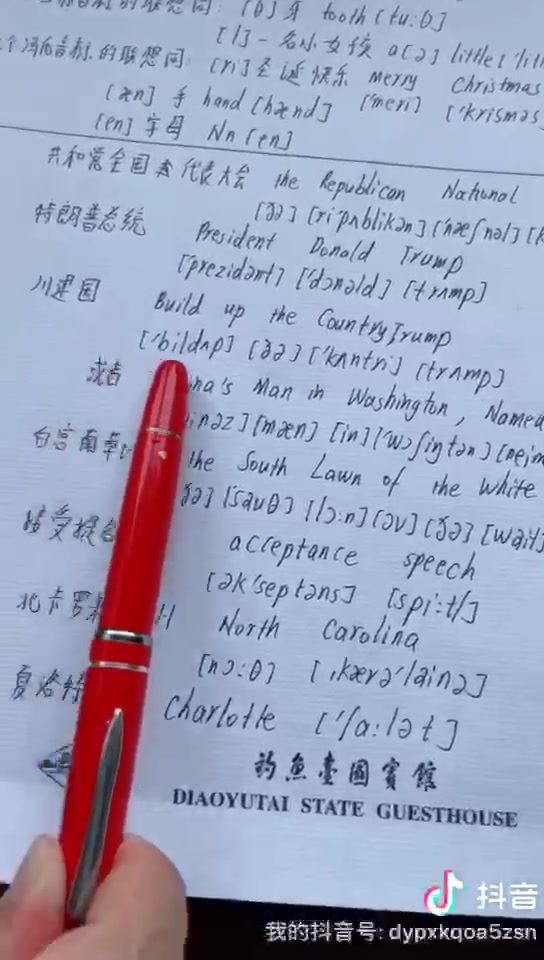 的联想词: [θ] 牙 tooth [tu:θ]
[l] 一名小女孩 a[ə] little
个冯氏音标的联想词: [ri] 圣诞快乐 merry Christmas
[æn] 手 hand [hænd] ['meri] ['krisməs
[en] 字母 Nn [en]
共和党全国 代表大会 the Republican National
[ðə] [ri'pʌblikən] ['næʃnəl]
特朗普总统 President Donald Trump
['prezidənt] ['dɔnəld] [trʌmp]
川建国 Build up the Country Trump
['bildʌp] [ðə] ['kʌntri] [trʌmp]
或者 na's Man in Washington, Named
inəz] [mæn] [in] ['wɔʃiŋtən] [neim
白宫南草 the South Lawn of the White
ðə] [sauθ] [lɔ:n] [əv] [ðə] [wait]
接受提 acceptance speech
[ək'septəns] [spi:tʃ]
北卡罗 州 North Carolina
[nɔ:θ] [,kærə'lainə]
夏洛特 Charlotte ['ʃa:lət]
釣魚臺國賓館
DIAOYUTAI STATE GUESTHOUSE
抖音
我的抖音号: dypxkqoa5zsn